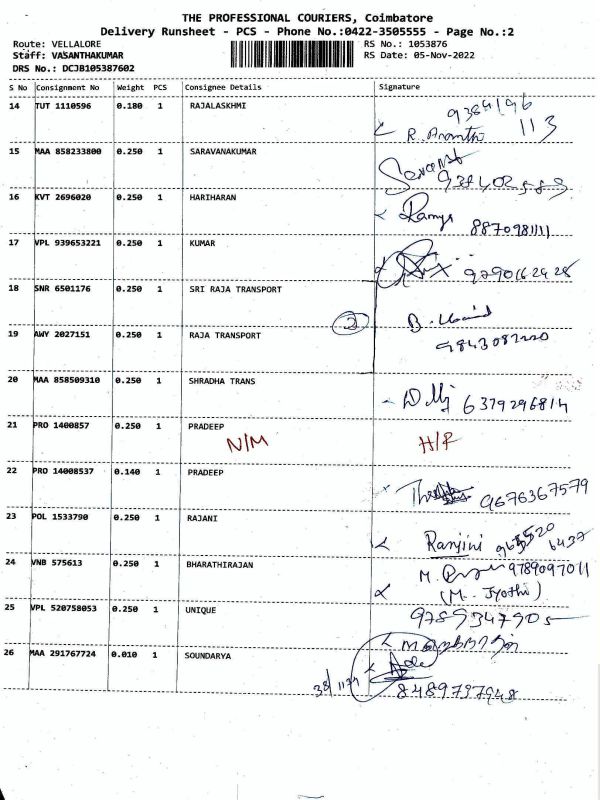 THE PROFESSIONAL COURIERS, Coimbatore
Delivery Runsheet - PCS - Phone No.:0422-3505555 - Page No.:2
Route: VELLALORE
RS No.: 1053876
Staff: VASANTHAKUMAR
RS Date: 05-Nov-2022
DRS No.: DCJB105387602
S No Consignment No Weight PCS Consignee Details Signature
14 TUT 1110596 0.180 1 RAJALASKHMI
R. Ananthi 113
15 MAA 858233800 0.250 1 SARAVANAKUMAR
16 KVT 2696020 0.250 1 HARIHARAN
Ramya 8870981111
17 VPL 939653221 0.250 1 KUMAR
18 SNR 6501176 0.250 1 SRI RAJA TRANSPORT
2
19 AWY 2027151 0.250 1 RAJA TRANSPORT
20 MAA 858509310 0.250 1 SHRADHA TRANS
6379296814
21 PRO 1400857 0.250 1 PRADEEP
N/M H/R
22 PRO 14008537 0.140 1 PRADEEP
9676367579
23 POL 1533790 0.250 1 RAJANI
Ranjini
24 VNB 575613 0.250 1 BHARATHIRAJAN
9789097011
(M. Jyothi)
25 VPL 520758053 0.250 1 UNIQUE
9789347905
26 MAA 291767724 0.010 1 SOUNDARYA
8489797948